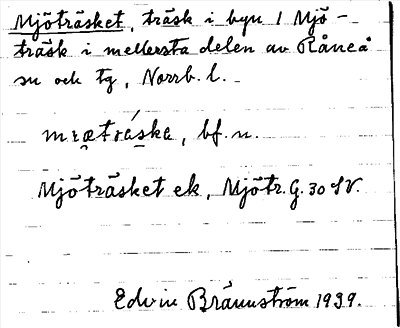 Mjöträsket, träsk i byn 1 Mjö-
träsk i mellersta delen av Råneå
sn och tg, Norrb. l.
mræträske, bf. n.
Mjöträsket ek, Mjötr. G. 30 SV.
Edvin Brännström 1939.